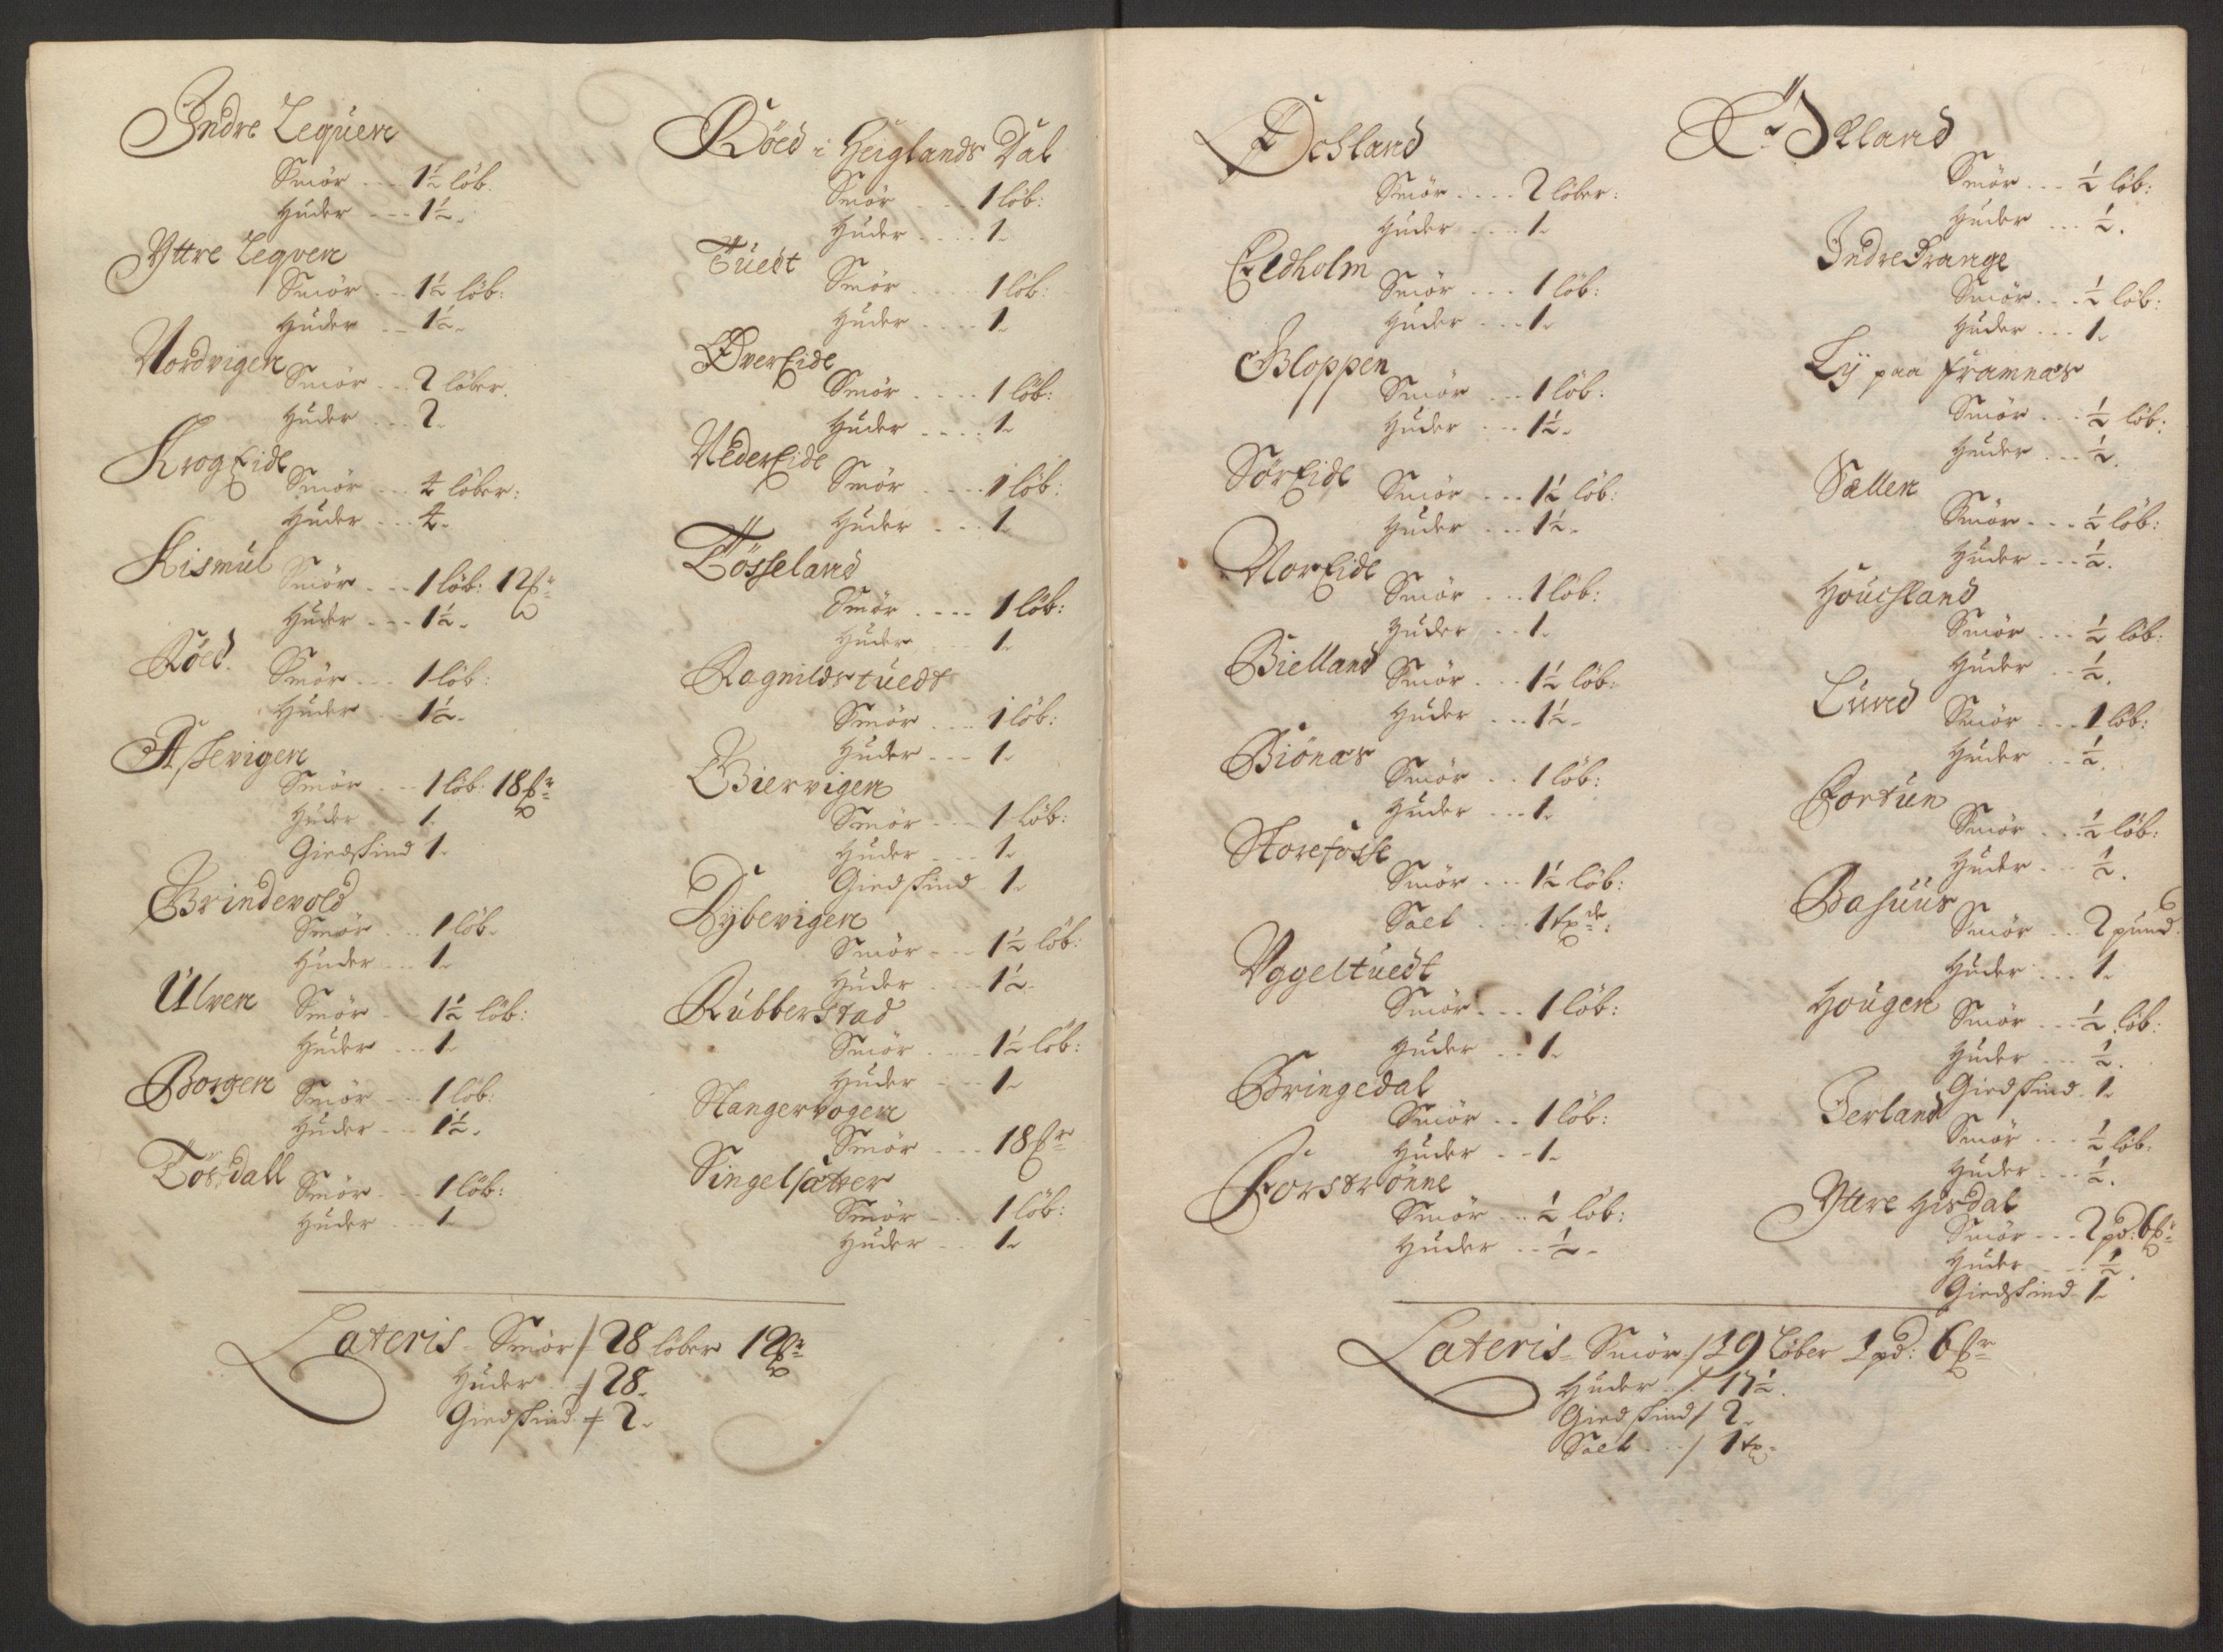 Indre Lequen
Smör --- 1½ löb.
Huder --- 1½.
Yttre Leqven
Smör --- 1½ löb:
Huder --- 1½.
Nordvigen
Smör --- 2 löber.
Huder --- 2.
KrogEide
Smör --- 4 löber:
Huder --- 4.
Kismul
Smör --- 1 löb: 12
Huder --- 1½.
Röed.
Smör --- 1 löb:
Huder --- 1½.
Assevigen
Smör --- 1 löb: 18
Huder --- 1.
Giedskind 1.
Brindevold
Smör --- 1 löb.
Huder --- 1.
Ulven
Smör --- 1½ löb:
Huder --- 1.
Borgen
Smör --- 1 löb:
Huder --- 1½.
Tösdall
Smör --- 1 löb:
Huder --- 1.
Röed i Heiglands Dal
Smör --- 1 löb:
Huder ---- 1.
Tuedt
Smör ---- 1 löb:
Huder ---- 1.
ØverEide
Smör ---- 1 löb:
Huder ---- 1.
NederEide
Smör ---- 1 löb:
Huder --- 1.
Tösseland
Smör ---- 1 löb:
Huder --- 1.
Ragnildstuedt
Smör --- 1 löb:
Huder --- 1.
Biervigen
Smör --- 1 löb:
Huder --- 1.
Giedskind 1.
Dybevigen
Smör --- 1½ löb:
Huder --- 1½.
Rubberstad
Smör ---- 1½ löb:
Huder --- 1.
Stangervogen
Smör --- 18
Singelsætter
Smör --- 1 löb:
Huder --- 1.
Lateris - Smör / 28 löber 12
Huder / 28.
Giedskind / 2.
Smör ---- 2 löber:
Huder ---- 1.
Eldholm
Smör --- 1 löb:
Huder --- 1.
Bloppen
Smör --- 1 löb:
Huder --- 1½.
SörEide
Smör --- 1½ löb:
Huder --- 1½.
NorEide
Smör --- 1 löb:
Huder -- 1.
Bielland
Smör --- 1½ löb:
Huder --- 1½.
Biönæs
Smör -- 1 löb:
Huder --- 1.
Storefosse
Smör --- 1½ löb:
Salt ---- 1
Vggeltuedt
Smör --- 1 löb:
Huder -- 1.
Bringedal
Smör -- 1 löb:
Huder -- 1.
Forströnne
Smör -- ½ löb:
Huder -- ½.
Smör --- ½ löb:
Huder --- ½.
Indre Drange
Smör --- ½ löb:
Huder --- 1.
Ly paa Framnæs
Smör --- ½ löb:
Huder --- ½.
Sællen
Smör --- ½ löb:
Huder --- ½.
Houchland
Smör --- ½ löb:
Huder -- ½.
Lund
Smör --- 1 löb:
Huder -- ½.
Fortun
Smör --- ½ löb:
Huder -- ½.
Bahuus
Smör -- 2 pund.
Huder --- 1.
Hougen
Smör --- ½ löb:
Huder --- ½.
Giedskind 1.
Jerland
Smör --- ½ löb.
Huder --- ½.
Yttre Hisdal
Smör --- 2 pd: 6
Huder --- ½.
Giedskind 1.
Lateris - Smör / 19 löber 1 pd: 6
Huder --- / 17½.
Giedskind / 2.
Salt --- / 1